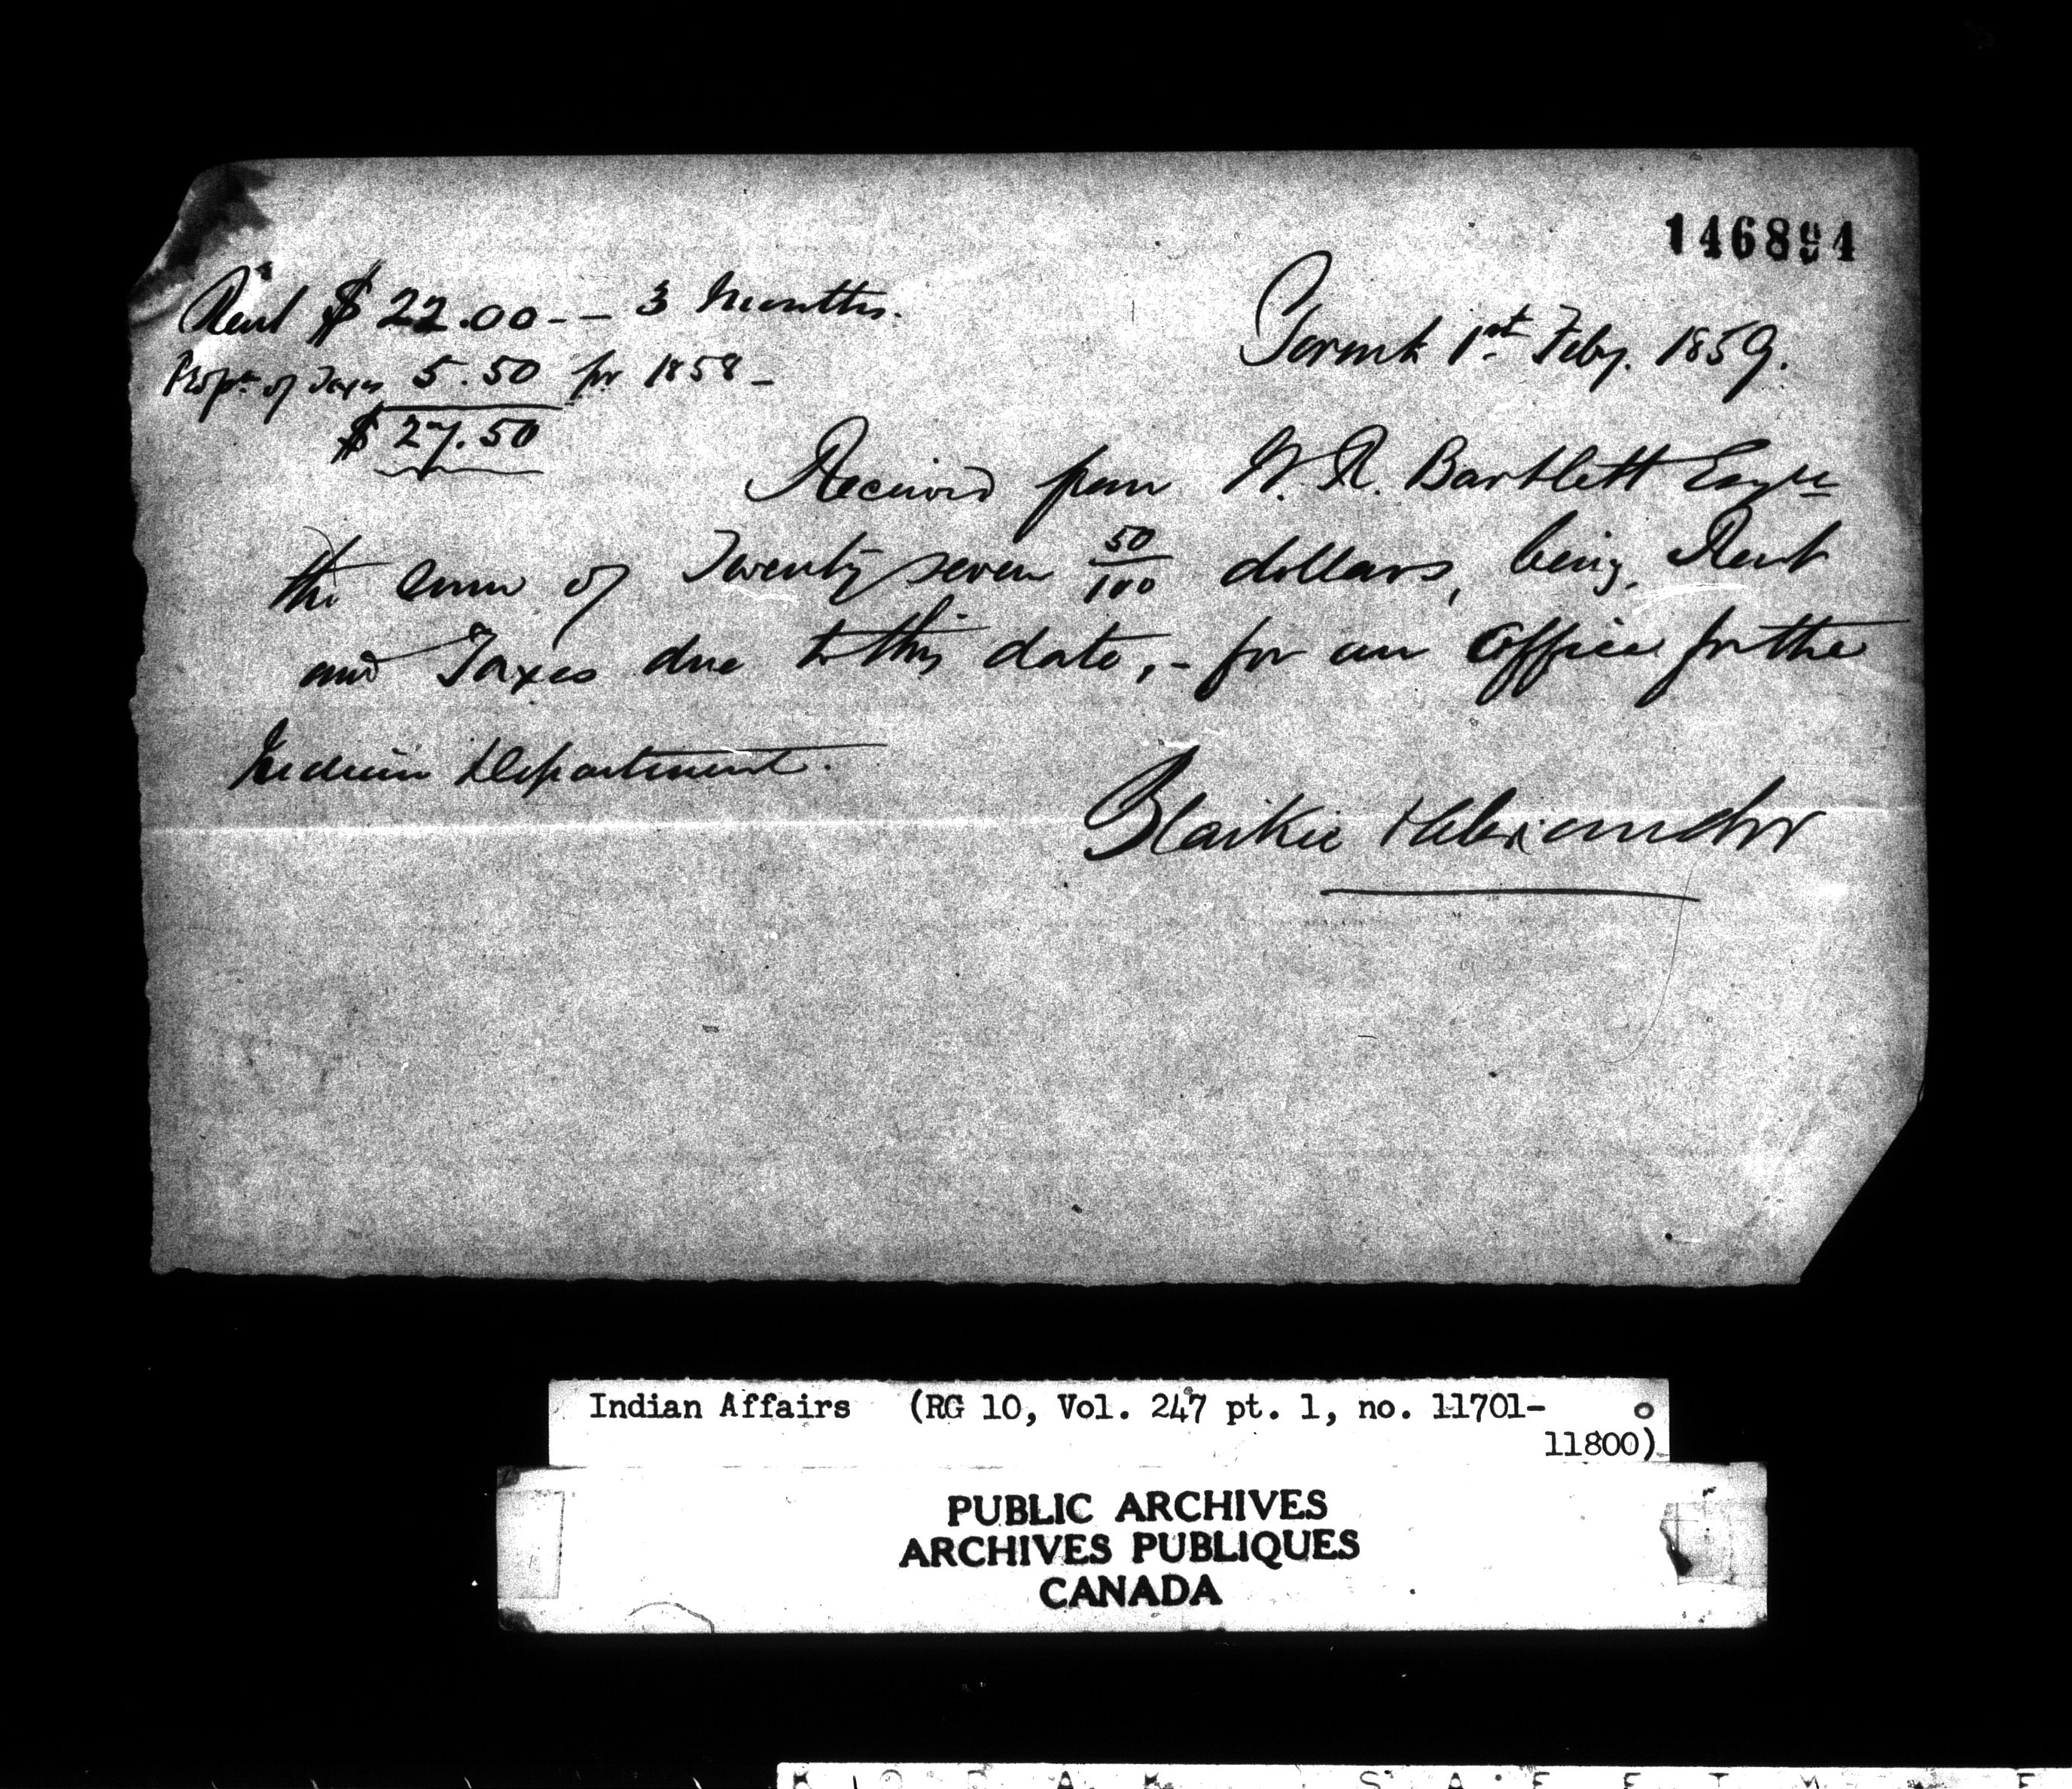 146894
Rent $ 22.00 -- 3 Months.
Toronto 1st Feby. 1859.
Propn of Taxes 5.50 for 1858 -
$ 27.50
Received from W. R. Bartlett Esqre
the sum of Twenty seven 50/100 dollars, being Rent
and Taxes due to this date, - for an Office for the
Indian Department.
Blaikie & Alexander
Indian Affairs (RG 10, Vol. 247 pt. 1, no. 11701-
11800)
PUBLIC ARCHIVES
ARCHIVES PUBLIQUES
CANADA